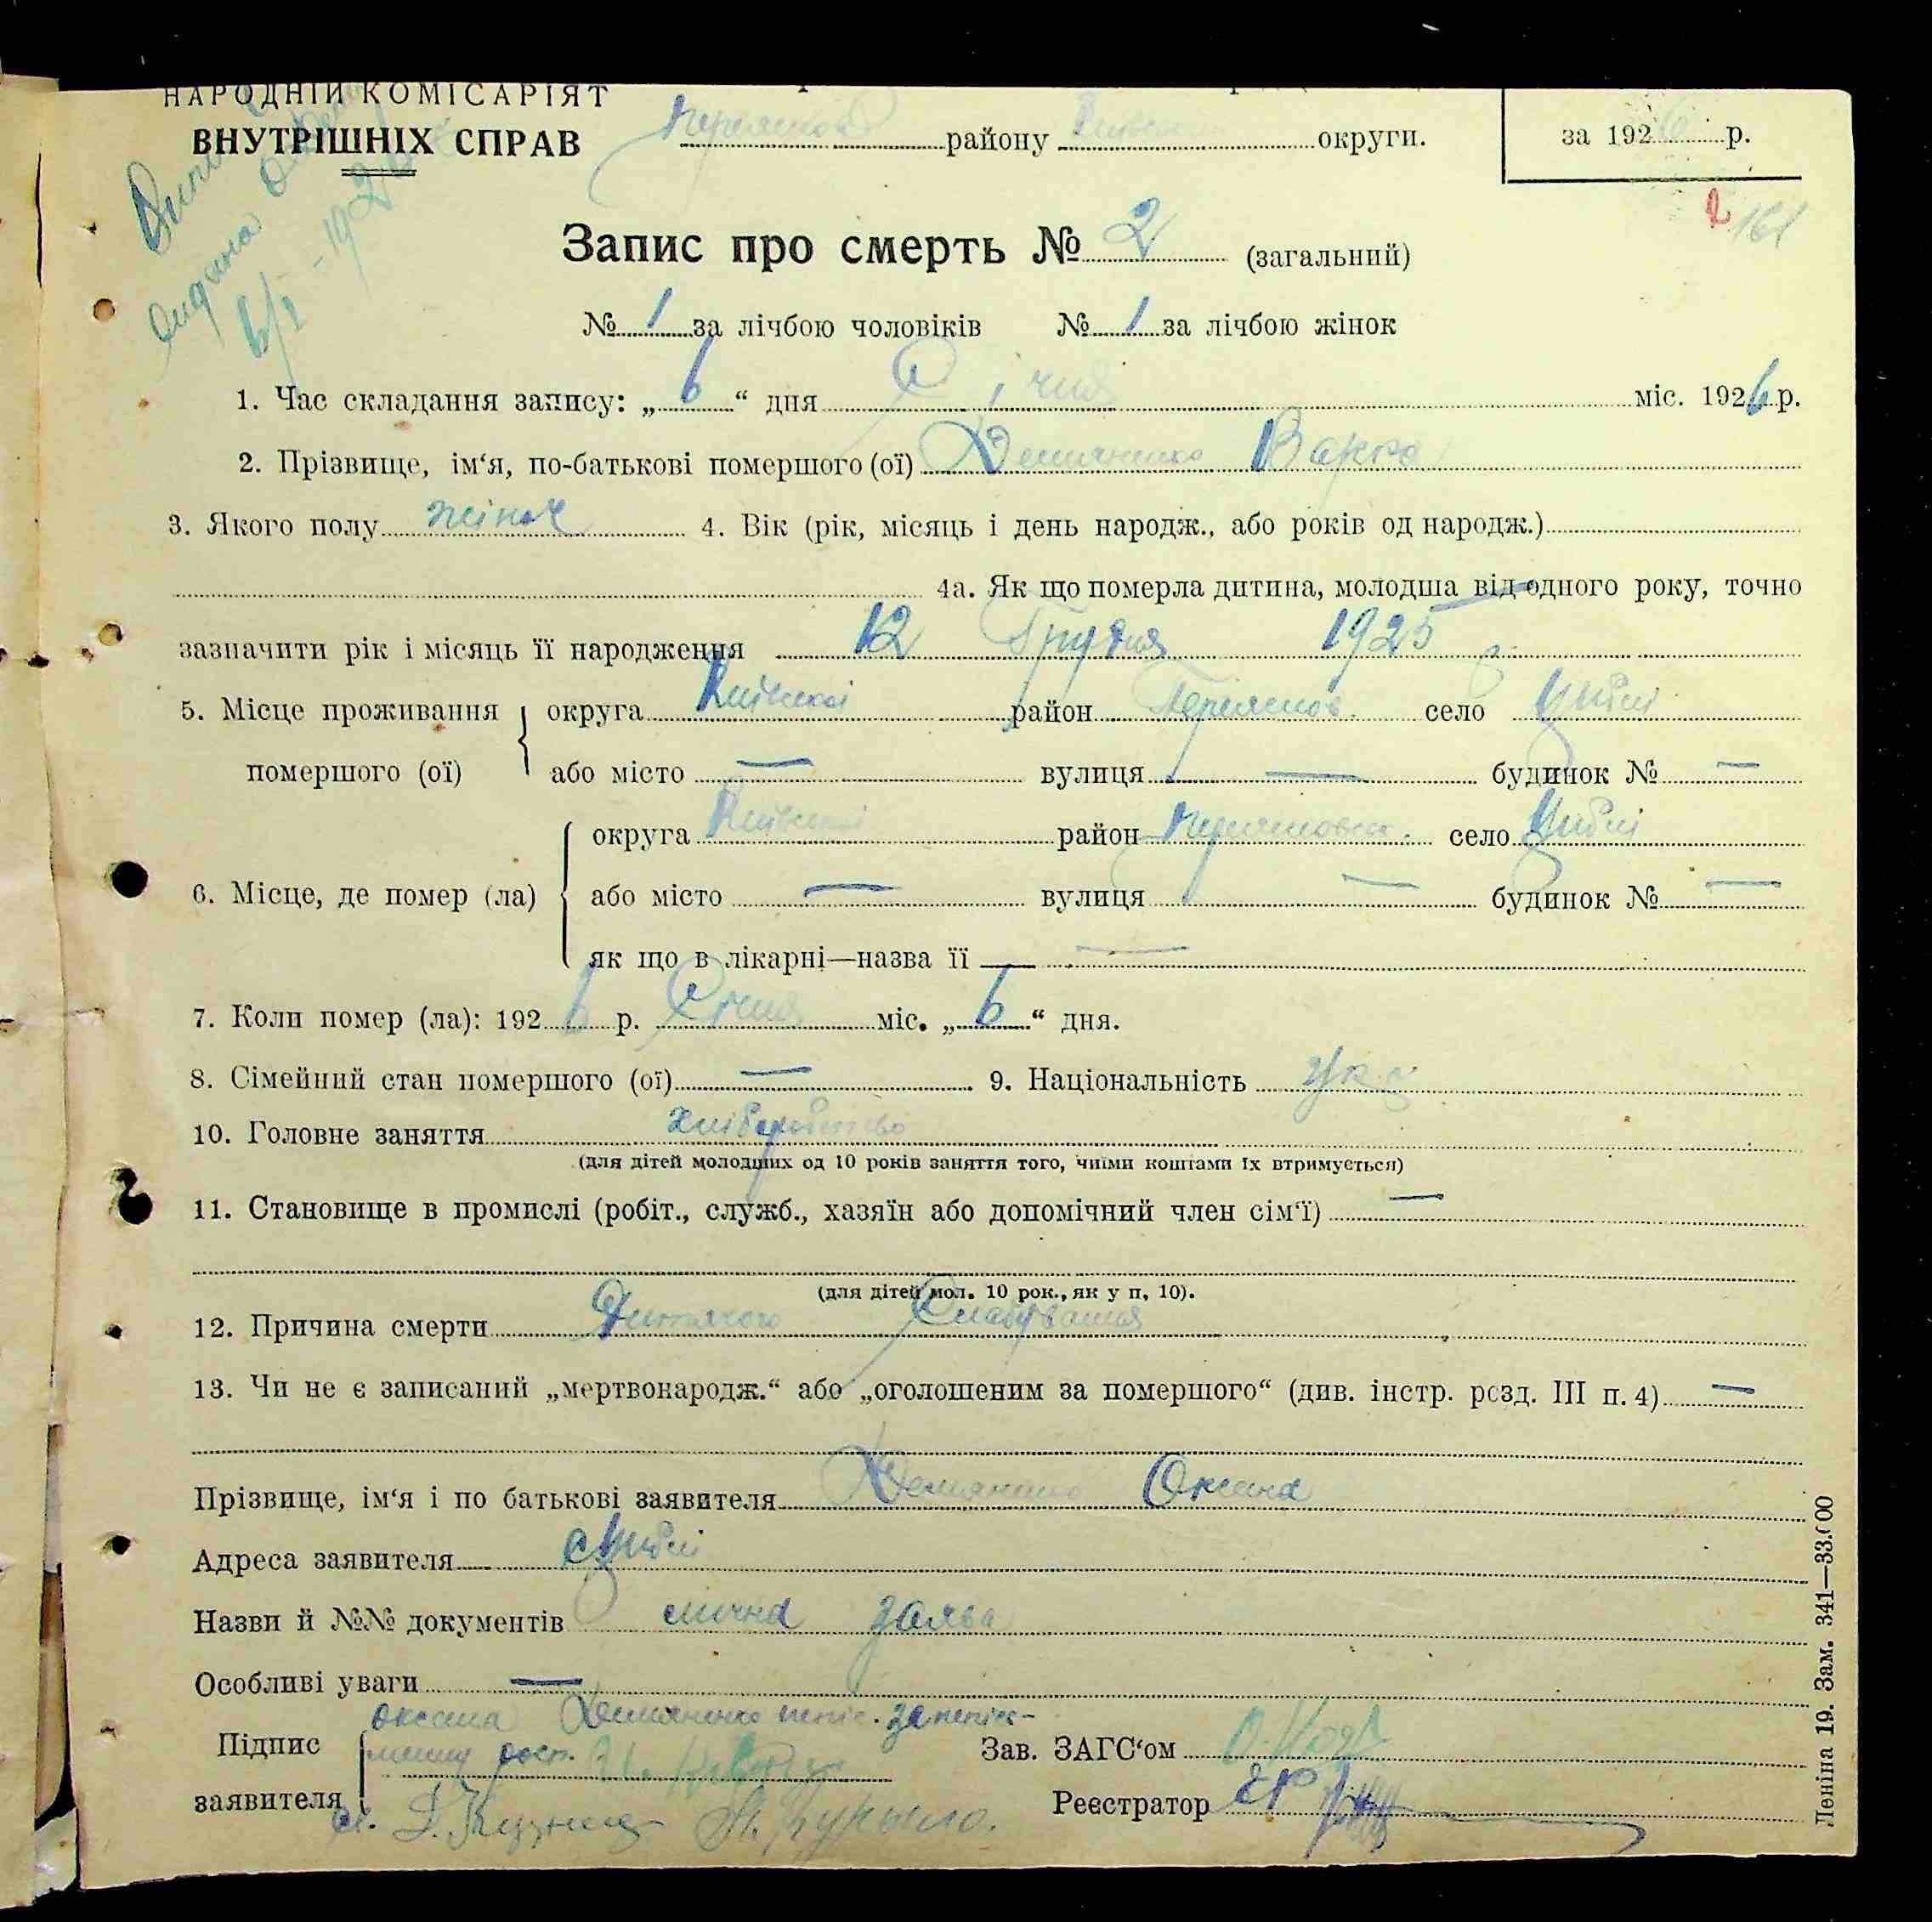 НАРОДНІЙ КОМІСАРІЯТ
ВНУТРІШНІХ СПРАВ
району округи.
за 1926 р.
2 161
6/I - 192
Запис про смерть № 2 (загальний)
№ 1 за лічбою чоловіків № 1 за лічбою жінок
1. Час складання запису: „ 6 “ дня Січня міс. 1926 р.
2. Прізвище, ім‘я, по-батькові помершого (ої) Демяненко Варка
3. Якого полу жіноч 4. Вік (рік, місяць і день народж., або років од народж.)
4а. Як що померла дитина, молодша від одного року, точно
зазначити рік і місяць її народження 12 Грудня 1925 р.
5. Місце проживання округа Київської район Переяслов. село Циблі
помершого (ої) або місто — вулиця — будинок № —
округа Київської район село Циблі
6. Місце, де помер (ла) або місто — вулиця — будинок № —
як що в лікарні—назва її —
7. Коли помер (ла): 1926 р. Січня міс. „ 6 “ дня.
8. Сімейний стан помершого (ої) — 9. Національність укр
10. Головне заняття хліборобство
(для дітей молодших од 10 років заняття того, чиїми коштами їх втримується)
11. Становище в промислі (робіт., служб., хазяїн або допомічний член сім‘ї) —
(для дітей мол. 10 рок., як у п, 10).
12. Причина смерти Дитячого Слабування
13. Чи не є записаний „мертвонародж.“ або „оголошеним за помершого“ (див. інстр. розд. III п. 4) —
Прізвище, ім‘я і по батькові заявителя Демяненко Оксана
Адреса заявителя с Циблі
Назви й №№ документів слична заява
Особливі уваги —
оксана Демяненко непис. за непись-
Підпис менну росп. Зав. ЗАГС‘ом
заявителя Реєстратор
Леніна 19. Зам. 341—33.000